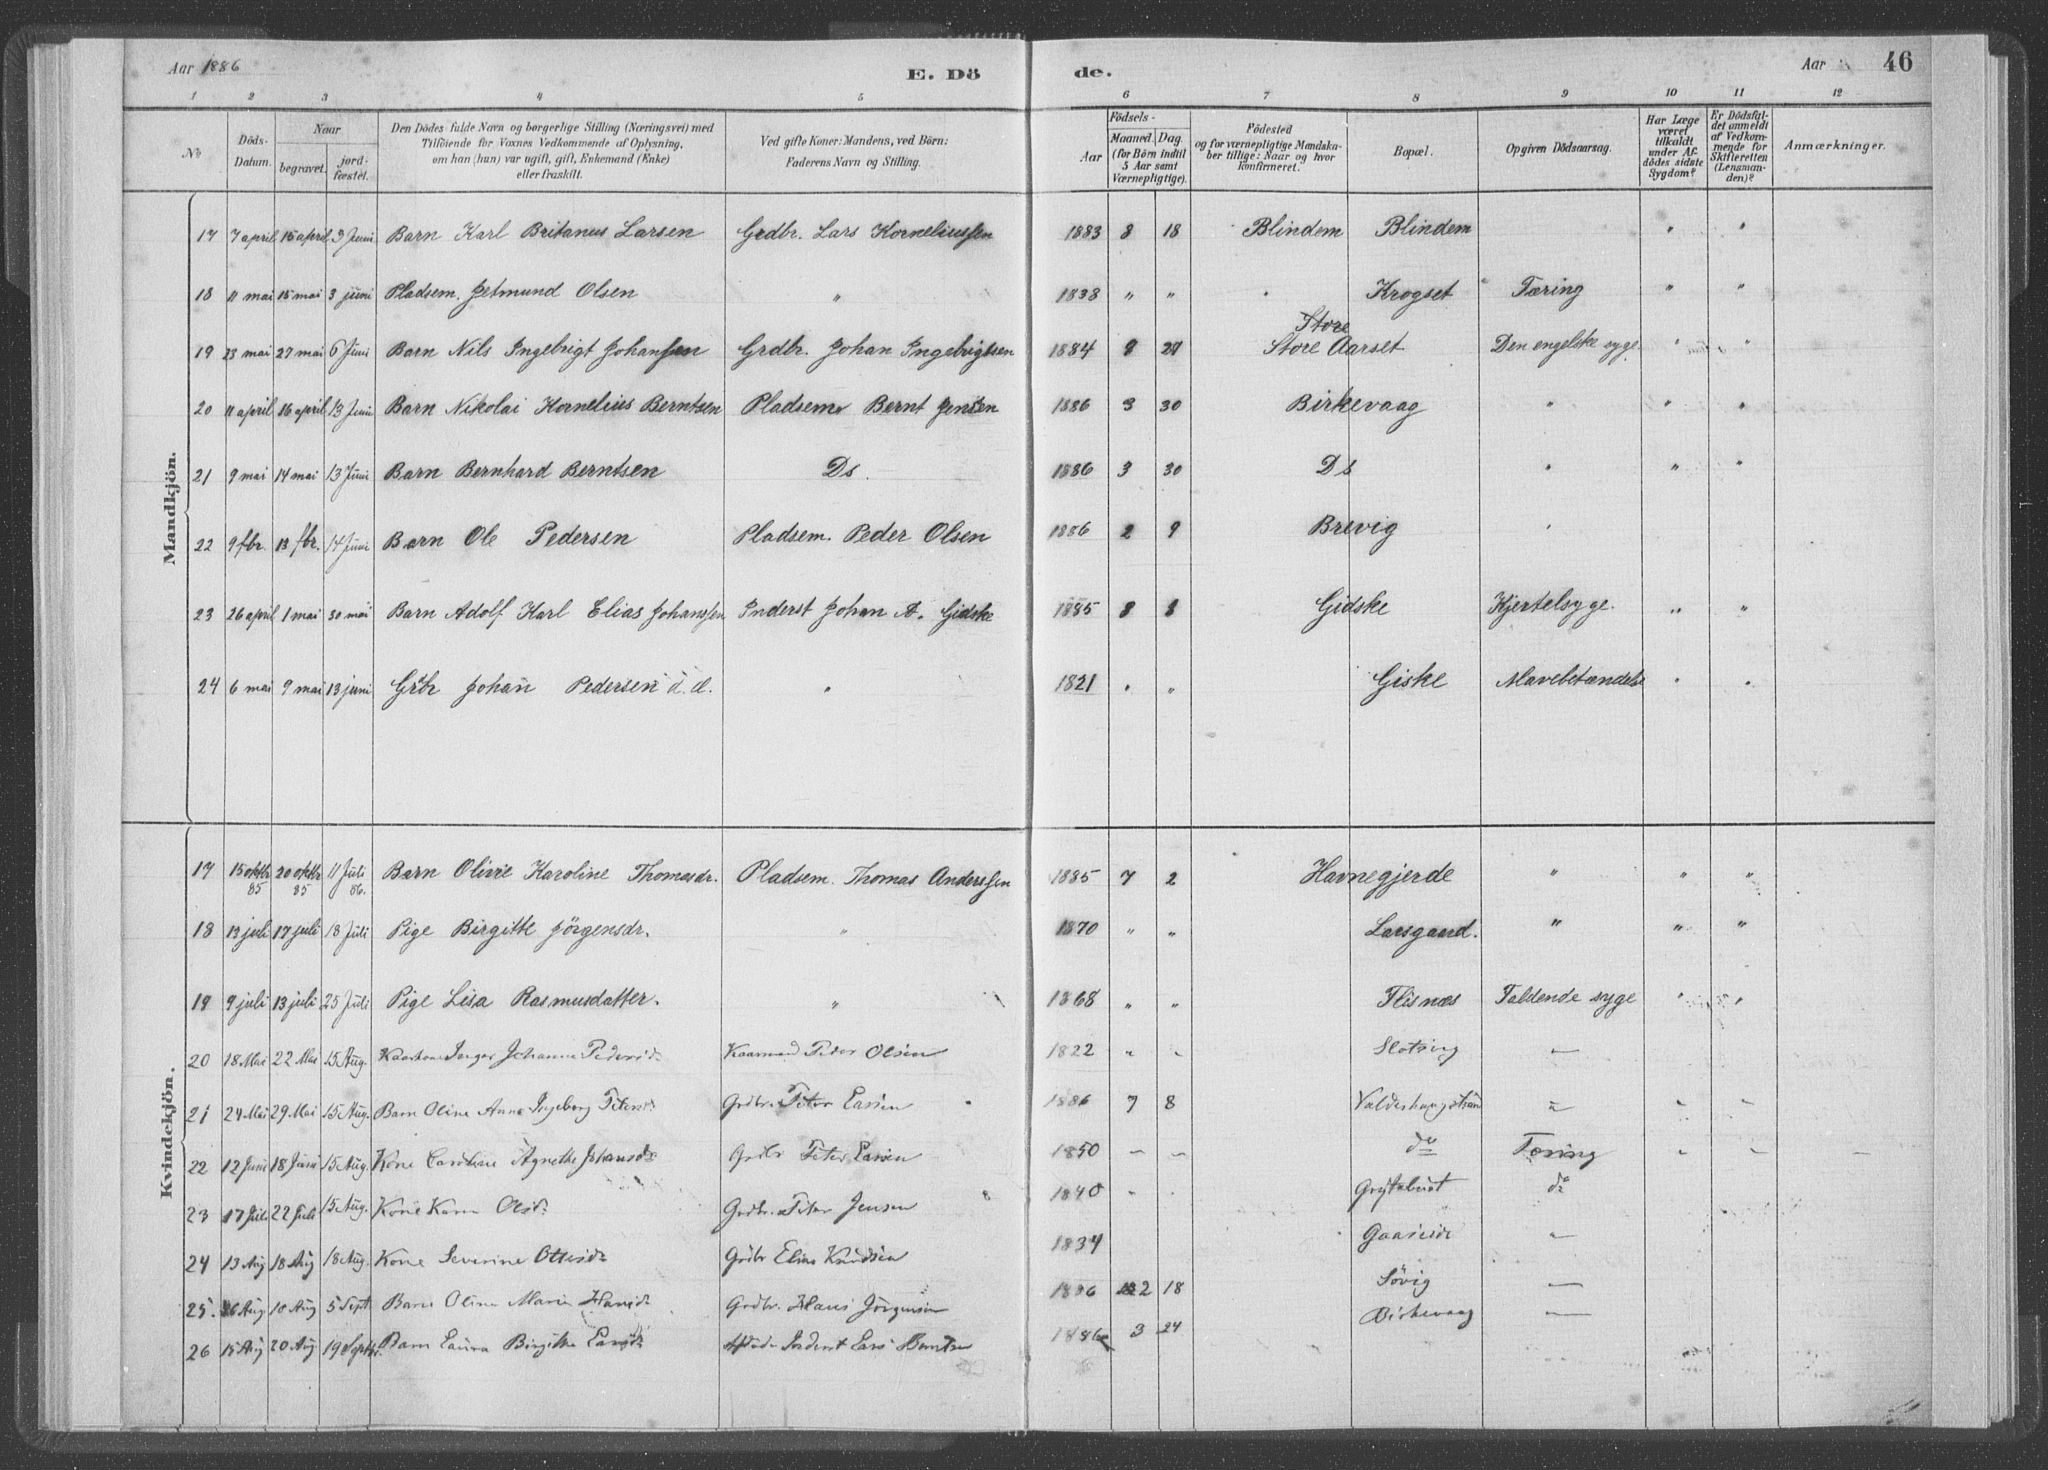 Aar 1886 E. Dö de. Aar 46
1 2 3 4 5 6 7 8 9 10 11 12
No
Döds-Datum.
Naar begravet. jord-fæstet.
Den Dödes fulde Navn og borgerlige Stilling (Næringsvei) med Tilföiende for Voxnes Vedkommende af Oplysning, om han (hun) var ugift, gift, Enkemand (Enke) eller fraskilt.
Ved gifte Koner: Mandens, ved Börn: Faderens Navn og Stilling.
Födsels-
Aar Maaned. Dag. (for Börn indtil 5 Aar samt Værnepligtige).
Födested og for værnepligtige Mandskaber tillige: Naar og hvor konfirmeret.
Bopæl.
Opgiven Dödsaarsag.
Har Læge været tilkaldt under Afdödes sidste Sygdom?
Er Dödsfaldet anmeldt af Vedkommende for Skifteretten (Lensmanden)?
Anmærkninger.
Mandkjön.
17 7 april 15 april 3 Juni Barn Karl Britanus Larsen Grdbr. Lars Korneliussen 1883 8 18 Blindem Blindem " "
18 11 mai 15 mai 3 juni Pladsem. Jetmund Olsen " 1838 " " Krogset Tæring " "
19 23 mai 27 mai 6 Juni Barn Nils Ingebrigt Johanssen Grdbr. Johan Ingebrigtsen 1884 9 Store Store Aarset Den engelske syge. " "
20 11 april 16 april 13 Juni Barn Nikolai Kornelius Berntsen Pladsem Bernt Jensen 1886 3 30 Birkevaag " " "
21 9 mai 14 mai 13 Juni Barn Bernhard Berntsen Ds. 1886 3 30 Ds " " "
22 9 fbr. 13 fbr. 14 Juni Barn Ole Pedersen Pladsem. Peder Olsen 1886 2 9 Brevig "
23 26 april 1 mai 30 mai Barn Adolf Karl Elias Johanssen Inderst Johan A. Gidske 1885 8 Gidske Kjertelsyge. " "
24 6 mai 9 mai 13 juni Grbr Johan Pedersen " 1821 " " Giske Mavebetændelse " "
Kvindekjön.
17 15 oktbr 85 20 oktbr 85 11 Juli 86. Barn Olivie Karoline Thomasdr. Pladsem. Thomas Anderssen 1885 7 2 Havnegjerde " " "
18 13 juli 17 juli 18 Juli Pige Birgitte Jörgensdr. " 1870 " " Larsgaard. " " "
19 9 juli 13 juli 25 Juli Pige Lisa Rasmusdatter. " 1868 " " Flisnæs Faldende syge " "
20 18 Mai 22 Mai 15 Aug. Johanne Pedersd. Kaarmand Peder Olsen 1822 " " —
21 24 Mai 29 Mai 15 Aug. Barn Oline Anna Ingeborg Petersd. Grdbr. Peter Larsen 1886 7 8 Valderhaugstran " " "
22 12 Juni 18 Juni 15 Aug. Kone Caroline Agnethe Johansdr Grdbr Peter Larsen 1850 " " do Tæring " " —
23 17 Juli 22 Juli 15 Aug. Kone Karen Olsdr Grdbr. Peter Jensen 1840 " " do
24 13 Aug 18 Aug 18 Aug. Kone Severine Ottersdr Grdbr Elias Knudsen 1834 Gaaseide "
25. Aug 10 Aug 5 Sept. Barn Olina Maria Hansdr Grdbr. Hans Jörgensen 1886 2 18 Sövig —
26 15 Aug 20 Aug 19 Septbr. Barn Laura Birgithe Larsdr Inderst Lars Berntsen 1886 3 24 Birkevaag —